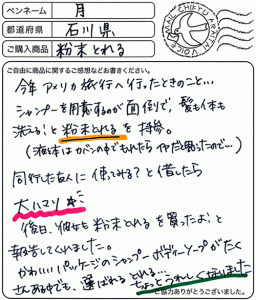 ペンネーム 月
都道府県 石川県
ご購入商品 粉末とれる
ご自由に商品に関するご感想などお書きください。
今年アメリカ旅行へ行ったときのこと…
シャンプーを用意するのが面倒で、髪も体も
洗える!と粉末とれるを持参。
(液体はカバンの中でもれたらイヤだと思ったので…)
同行した友人に使ってみる?と借したら
大ハマリ
後日、彼女も粉末とれるを買ったよ!と
報告してくれました。
かわいいパッケージのシャンプーボディーソープがたく
さんある中でも、選ばれるとれる…
ちょっとうれしくなりました
ご協力ありがとうございました。